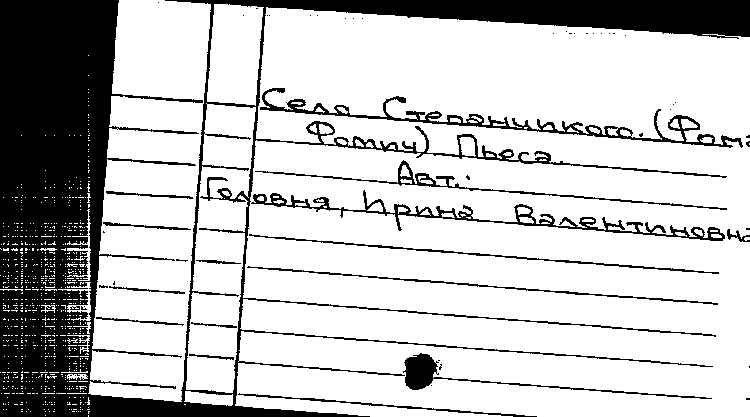 Села Степанчикого. (Фома
Фомич) Пьеса.
Авт.:
Головня, Ирина Валентиновна